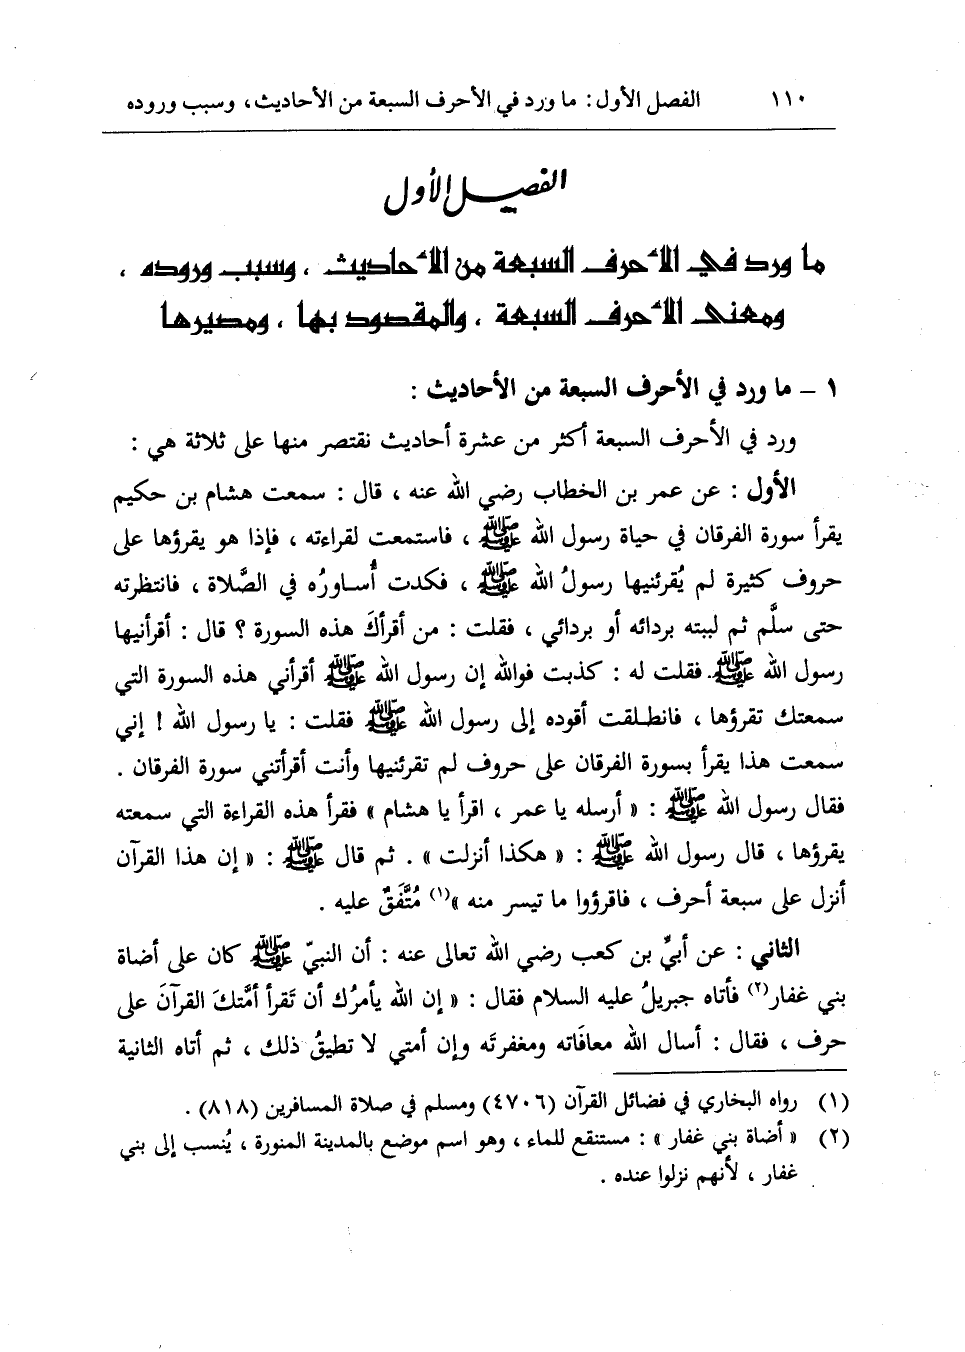 ١١٠ الفصل الأول : ما ورد في الأحرف السبعة من الأحاديث ، وسبب وروده
الفصل الأول
ما ورد في الأحرف السبعة من الأحاديث ، وسبب وروده ،
ومعنى الأحرف السبعة ، والمقصود بها ، ومصيرها
١ – ما ورد في الأحرف السبعة من الأحاديث :
ورد في الأحرف السبعة أكثر من عشرة أحاديث نقتصر منها على ثلاثة هي :
الأول : عن عمر بن الخطاب رضي الله عنه ، قال : سمعت هشام بن حكيم
يقرأ سورة الفرقان في حياة رسول الله ﷺ ، فاستمعت لقراءته ، فإذا هو يقرؤها على
حروف كثيرة لم يُقرئنيها رسولُ الله ﷺ ، فكدت أُساورُه في الصَّلاة ، فانتظرته
حتى سلَّم ثم لببته بردائه أو بردائي ، فقلت : من أقرأكَ هذه السورة ؟ قال : أقرأنيها
رسول الله ﷺ. فقلت له : كذبت فوالله إن رسول الله ﷺ أقرأني هذه السورة التي
سمعتك تقرؤها ، فانطلقت أقوده إلى رسول الله ﷺ فقلت : يا رسول الله ! إني
سمعت هذا يقرأ بسورة الفرقان على حروف لم تقرئنيها وأنت أقرأتني سورة الفرقان .
فقال رسول الله ﷺ : « أرسله يا عمر ، اقرأ يا هشام » فقرأ هذه القراءة التي سمعته
يقرؤها ، قال رسول الله ﷺ : « هكذا أنزلت » . ثم قال ﷺ : « إن هذا القرآن
أنزل على سبعة أحرف ، فاقرؤوا ما تيسر منه »(١) مُتَّفَقٌ عليه .
الثاني : عن أبيِّ بن كعب رضي الله تعالى عنه : أن النبيّ ﷺ كان على أضاة
بني غفار(٢) فأتاه جبريلُ عليه السلام فقال : « إن الله يأمرُك أن تَقرأ أمَّتكَ القرآنَ على
حرف ، فقال : أسال الله معافَاته ومغفرتَه وإن أمتي لا تطيقُ ذلك ، ثم أتاه الثانية
(١) رواه البخاري في فضائل القرآن (٤٧٠٦) ومسلم في صلاة المسافرين (٨١٨) .
(٢) « أضاة بني غفار » : مستنقع للماء ، وهو اسم موضع بالمدينة المنورة ، يُنسب إلى بني
غفار ، لأنهم نزلوا عنده .